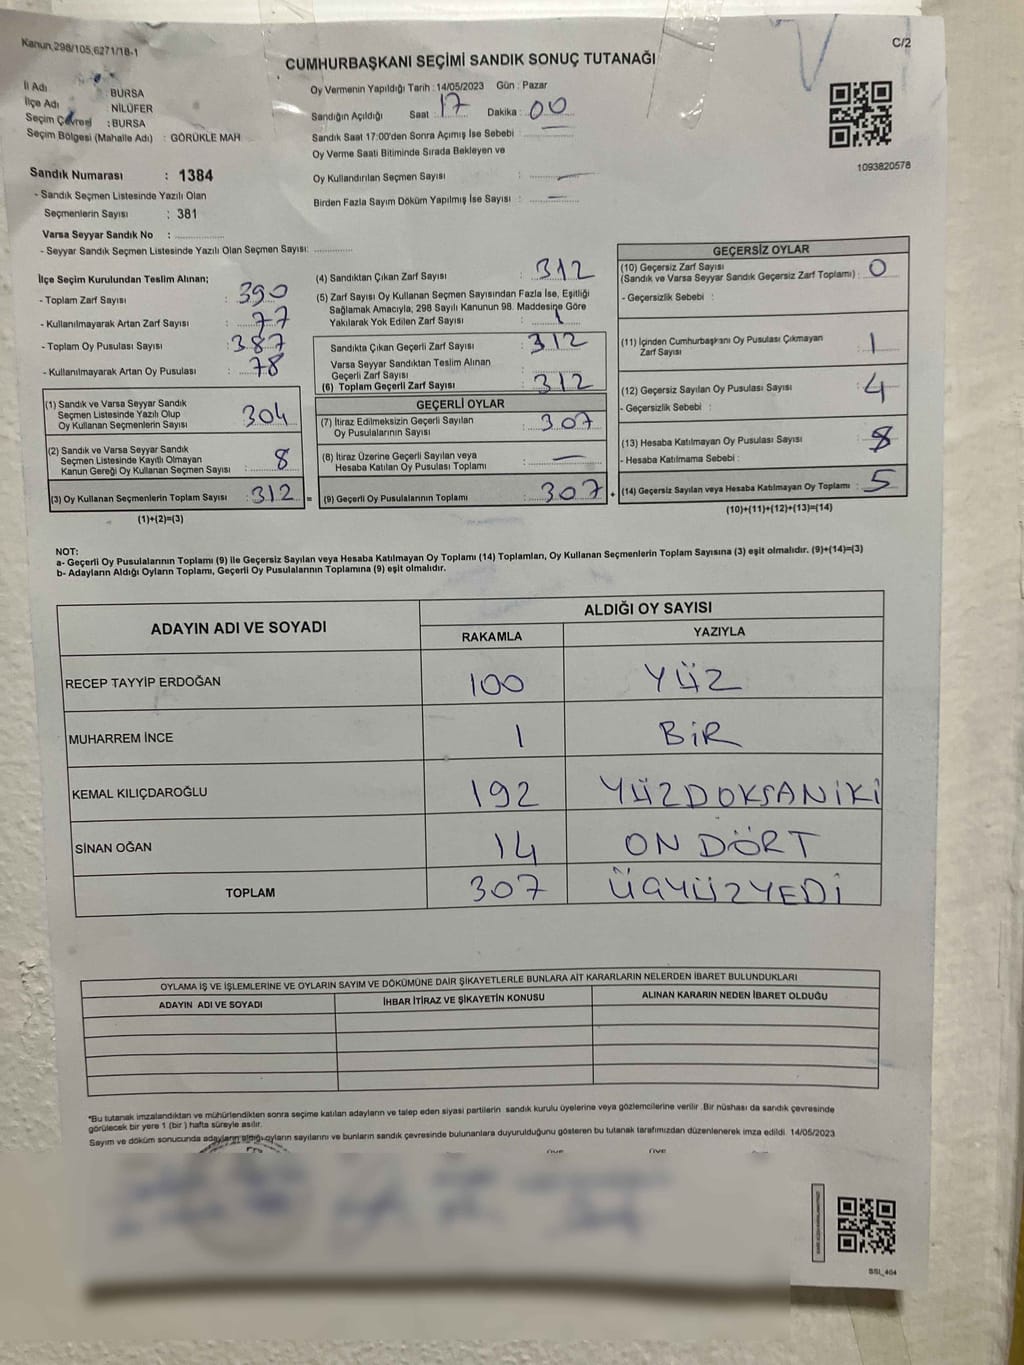 Kanun,298/105,6271/18-1
C/2
CUMHURBAŞKANI SEÇİMİ SANDIK SONUÇ TUTANAĞI
İl Adı : BURSA
İlçe Adı : NİLÜFER
Seçim Çevresi : BURSA
Seçim Bölgesi (Mahalle Adı) : GÖRÜKLE MAH
Oy Vermenin Yapıldığı Tarih : 14/05/2023 Gün : Pazar
Sandığın Açıldığı Saat : 17 Dakika : 00
Sandık Saat 17:00'den Sonra Açımış İse Sebebi : —
Oy Verme Saati Bitiminde Sırada Bekleyen ve
Oy Kullandırılan Seçmen Sayısı : —
Birden Fazla Sayım Döküm Yapılmış İse Sayısı : —
1093820578
Sandık Numarası : 1384
- Sandık Seçmen Listesinde Yazılı Olan
Seçmenlerin Sayısı : 381
Varsa Seyyar Sandık No :
- Seyyar Sandık Seçmen Listesinde Yazılı Olan Seçmen Sayısı:
İlçe Seçim Kurulundan Teslim Alınan;
- Toplam Zarf Sayısı : 390
- Kullanılmayarak Artan Zarf Sayısı : 77
- Toplam Oy Pusulası Sayısı : 387
- Kullanılmayarak Artan Oy Pusulası : 78
(1) Sandık ve Varsa Seyyar Sandık
Seçmen Listesinde Yazılı Olup
Oy Kullanan Seçmenlerin Sayısı : 304
(2) Sandık ve Varsa Seyyar Sandık
Seçmen Listesinde Kayıtlı Olmayan
Kanun Gereği Oy Kullanan Seçmen Sayısı : 8
(3) Oy Kullanan Seçmenlerin Toplam Sayısı : 312 =
(1)+(2)=(3)
(4) Sandıktan Çıkan Zarf Sayısı : 312
(5) Zarf Sayısı Oy Kullanan Seçmen Sayısından Fazla İse, Eşitliği
Sağlamak Amacıyla, 298 Sayılı Kanunun 98. Maddesine Göre
Yakılarak Yok Edilen Zarf Sayısı : 1
Sandıkta Çıkan Geçerli Zarf Sayısı : 312
Varsa Seyyar Sandıktan Teslim Alınan
Geçerli Zarf Sayısı :
(6) Toplam Geçerli Zarf Sayısı : 312
GEÇERLİ OYLAR
(7) İtiraz Edilmeksizin Geçerli Sayılan
Oy Pusulalarının Sayısı : 307
(8) İtiraz Üzerine Geçerli Sayılan veya
Hesaba Katılan Oy Pusulası Toplamı : —
(9) Geçerli Oy Pusulalarının Toplamı : 307 +
GEÇERSİZ OYLAR
(10) Geçersiz Zarf Sayısı
(Sandık ve Varsa Seyyar Sandık Geçersiz Zarf Toplamı) : 0
- Geçersizlik Sebebi :
(11) İçinden Cumhurbaşkanı Oy Pusulası Çıkmayan
Zarf Sayısı : 1
(12) Geçersiz Sayılan Oy Pusulası Sayısı : 4
- Geçersizlik Sebebi :
(13) Hesaba Katılmayan Oy Pusulası Sayısı :
- Hesaba Katılmama Sebebi :
(14) Geçersiz Sayılan veya Hesaba Katılmayan Oy Toplamı : 5
(10)+(11)+(12)+(13)=(14)
NOT:
a- Geçerli Oy Pusulalarının Toplamı (9) ile Geçersiz Sayılan veya Hesaba Katılmayan Oy Toplamı (14) Toplamları, Oy Kullanan Seçmenlerin Toplam Sayısına (3) eşit olmalıdır. (9)+(14)=(3)
b- Adayların Aldığı Oyların Toplamı, Geçerli Oy Pusulalarının Toplamına (9) eşit olmalıdır.
ADAYIN ADI VE SOYADI ALDIĞI OY SAYISI
RAKAMLA YAZIYLA
RECEP TAYYİP ERDOĞAN 100 YÜZ
MUHARREM İNCE 1 BİR
KEMAL KILIÇDAROĞLU 192 YÜZDOKSANİKİ
SİNAN OĞAN 14 ON DÖRT
TOPLAM 307 ÜÇYÜZYEDİ
OYLAMA İŞ VE İŞLEMLERİNE VE OYLARIN SAYIM VE DÖKÜMÜNE DAİR ŞİKAYETLERLE BUNLARA AİT KARARLARIN NELERDEN İBARET BULUNDUKLARI
ADAYIN ADI VE SOYADI İHBAR İTİRAZ VE ŞİKAYETİN KONUSU ALINAN KARARIN NEDEN İBARET OLDUĞU
*Bu tutanak imzalandıktan ve mühürlendikten sonra seçime katılan adayların ve talep eden siyasi partilerin sandık kurulu üyelerine veya gözlemcilerine verilir .Bir nüshası da sandık çevresinde
görülecek bir yere 1 (bir ) hafta süreyle asılır.
Sayım ve döküm sonucunda adayların aldığı oyların sayılarını ve bunların sandık çevresinde bulunanlara duyurulduğunu gösteren bu tutanak tarafımızdan düzenlenerek imza edildi. 14/05/2023
SSI_404